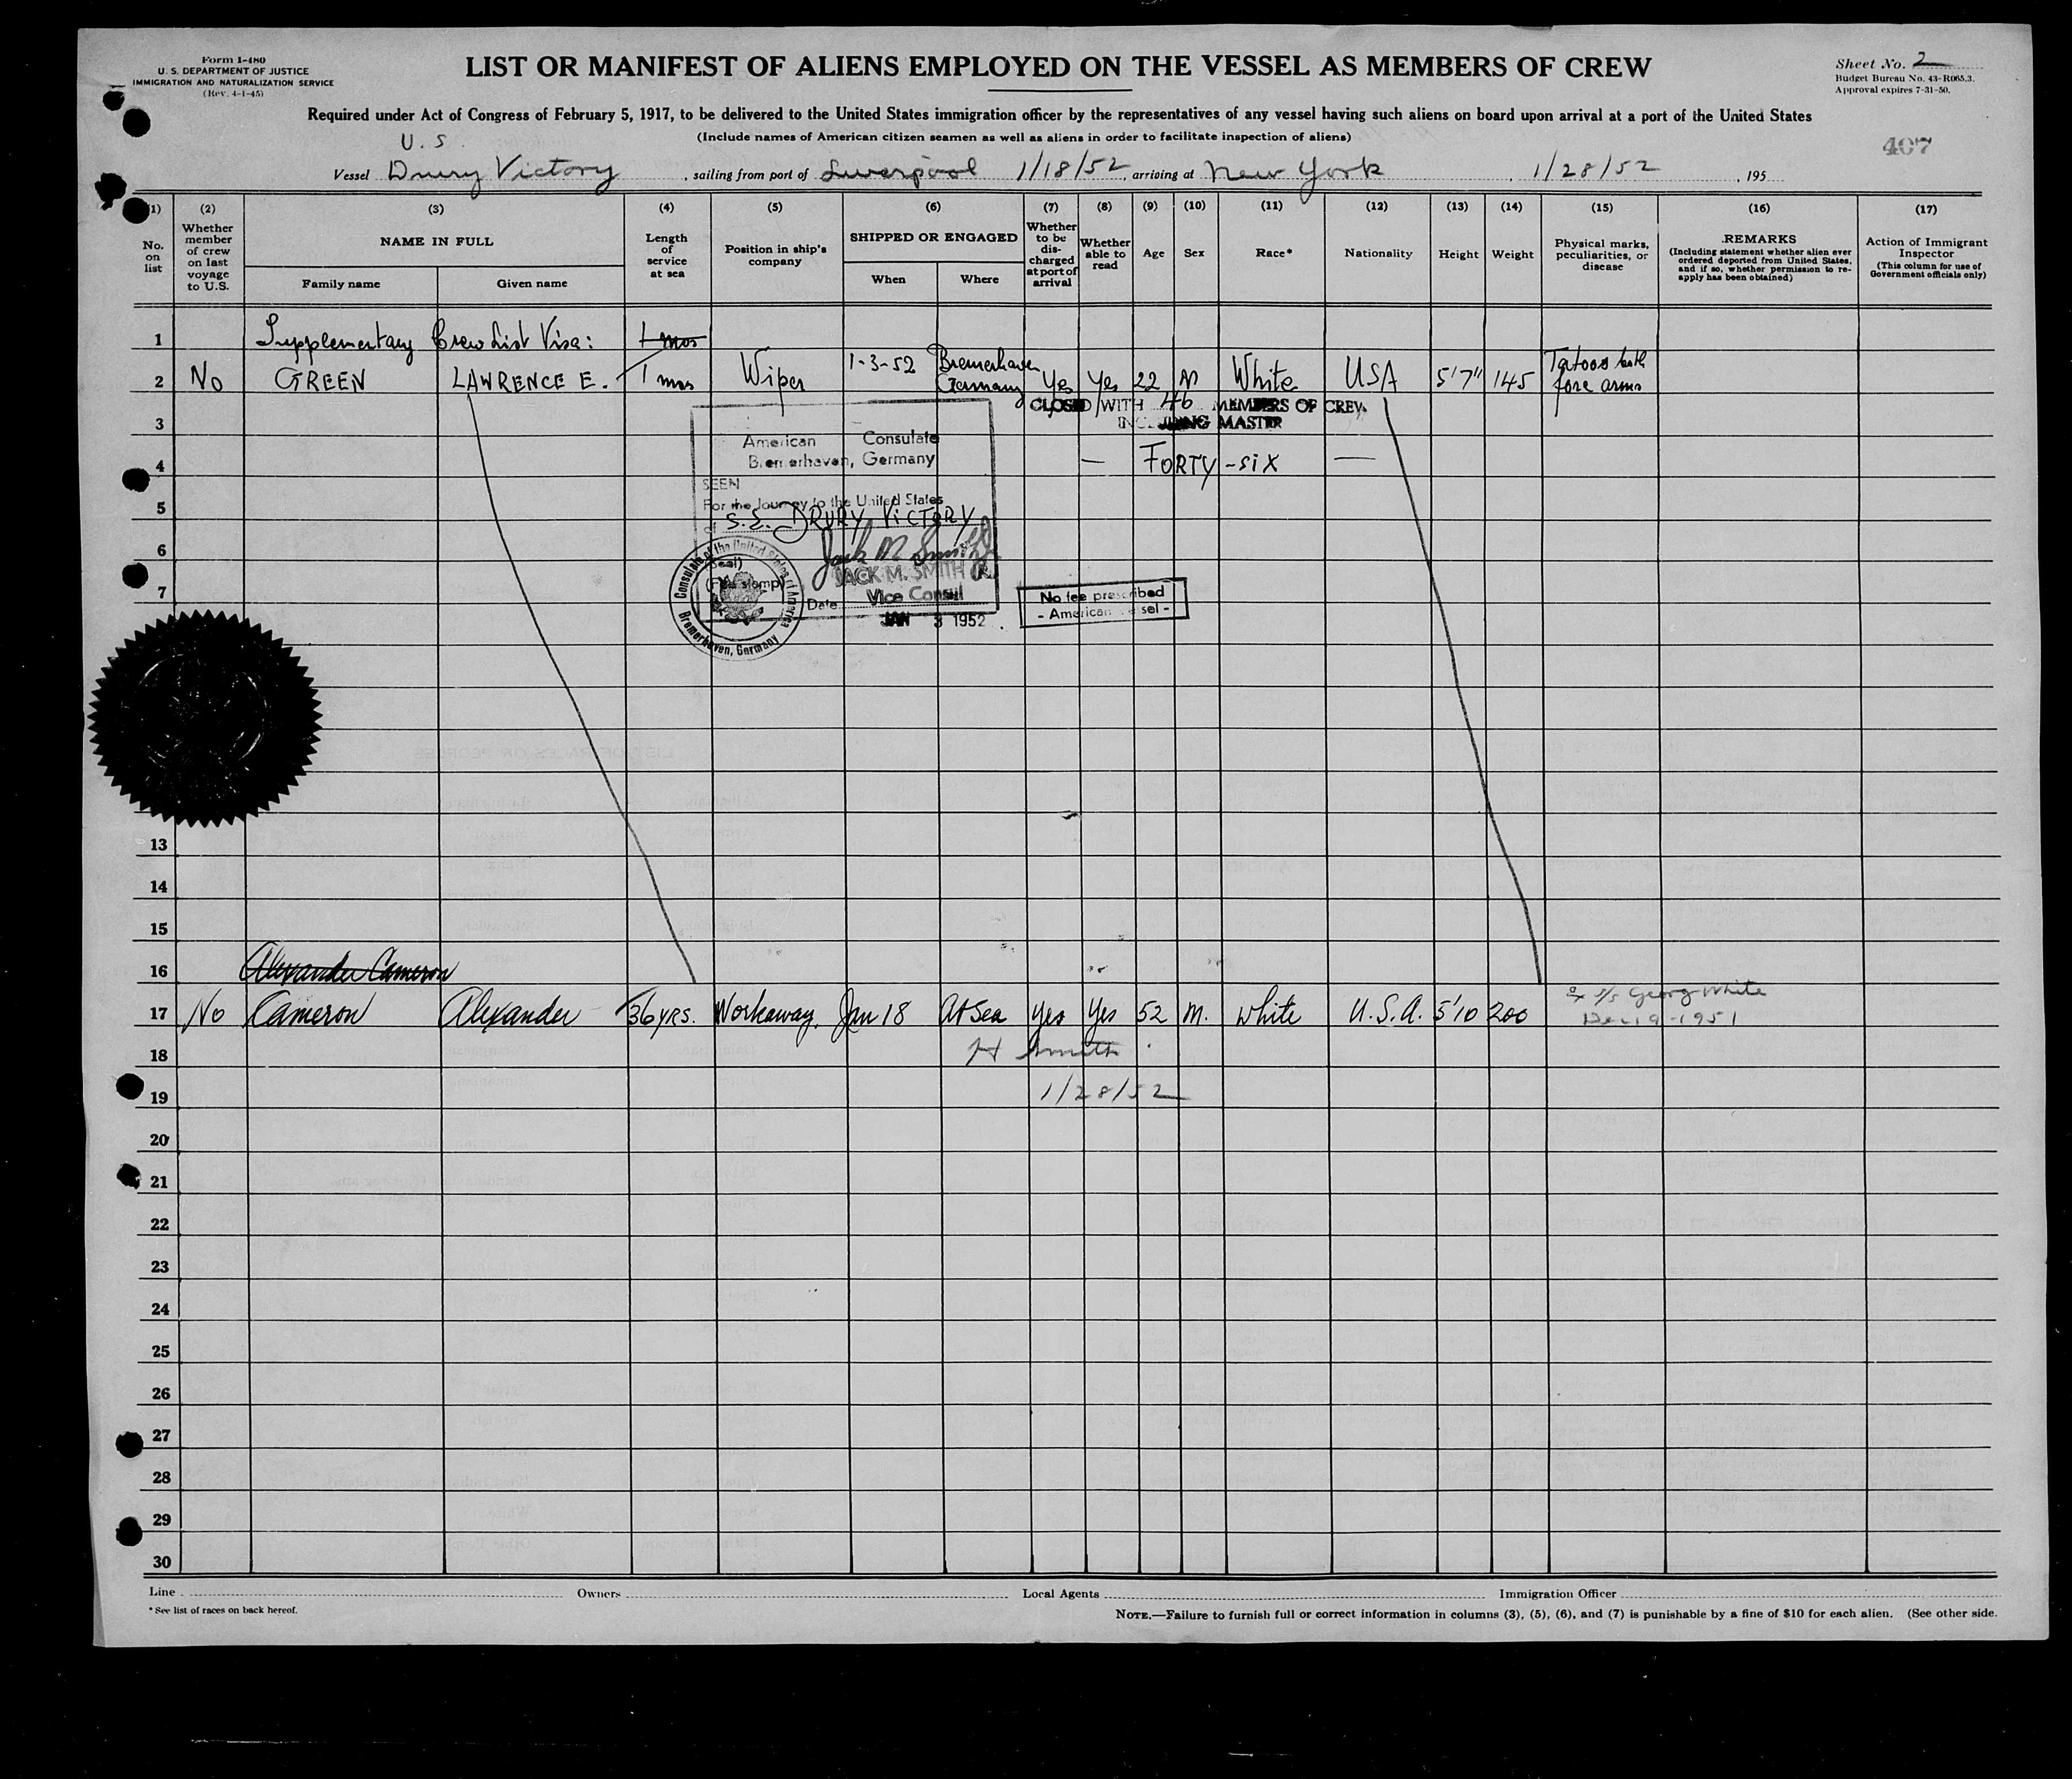 Form I-480
U. S. DEPARTMENT OF JUSTICE
IMMIGRATION AND NATURALIZATION SERVICE
(Rev. 4-1-45)
LIST OR MANIFEST OF ALIENS EMPLOYED ON THE VESSEL AS MEMBERS OF CREW
Sheet No. 2
Budget Bureau No. 43-R065.3.
Approval expires 7-31-50.
Required under Act of Congress of February 5, 1917, to be delivered to the United States immigration officer by the representatives of any vessel having such aliens on board upon arrival at a port of the United States
(Include names of American citizen seamen as well as aliens in order to facilitate inspection of aliens)
407
U. S.
Vessel Drury Victory, sailing from port of Liverpool 1/18/52, arriving at New York, 1/28/52, 195
(1) (2) (3) (4) (5) (6) (7) (8) (9) (10) (11) (12) (13) (14) (15) (16) (17)
No. on list
Whether member of crew on last voyage to U.S.
NAME IN FULL
Family name
Given name
Length of service at sea
Position in ship's company
SHIPPED OR ENGAGED
When
Where
Whether to be discharged at port of arrival
Whether able to read
Age
Sex
Race*
Nationality
Height
Weight
Physical marks, peculiarities, or disease
REMARKS
(Including statement whether alien ever ordered deported from United States, and if so, whether permission to reapply has been obtained)
Action of Immigrant Inspector
(This column for use of Government officials only)
1 Supplementary Crew List Visa: 1 mos
2 No GREEN LAWRENCE E. 1 mos Wiper 1-3-52 Bremerhaven Germany Yes Yes 22 M White USA 5'7" 145 Tatoos both fore arms
CLOSED WITH 46 MEMBERS OF CREW
INCLUDING MASTER
3
American Consulate
Bremerhaven, Germany
4 — FORTY-SIX —
SEEN
For the Journey to the United States
5
of S.S. DRURY VICTORY
6
Jack M. Smith Jr.
(Seal)
JACK M. SMITH JR.
(Fee stamp)
Vice Consul
7
Date
JAN 3 1952
Consulate of the United States of America
Bremerhaven, Germany
No fee prescribed
- American Vessel -
13
14
15
16 Alexander Cameron
17 No Cameron Alexander 36 YRS. Workaway. Jan 18 At Sea Yes Yes 52 M. White U.S.A. 5'10 200 Ex S/S Georg White
Dec 19-1951
18 H Smith
19 1/28/52
20
21
22
23
24
25
26
27
28
29
30
Line Owners Local Agents Immigration Officer
* See list of races on back hereof.
NOTE.—Failure to furnish full or correct information in columns (3), (5), (6), and (7) is punishable by a fine of $10 for each alien. (See other side.